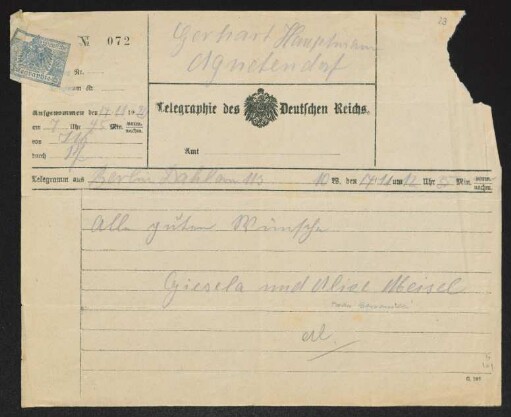 23
№ 072
Gerhart Hauptmann
Agnetendorf
Nr.
Telegraphie des Deutschen Reichs.
Aufgenommen den 17 11
um 7 Uhr 45 Min.
von
durch
Amt
Telegramm aus Berlin Dahlem 113 10 W. den 17 11 um 12 Uhr Min.
Alle guten Wünsche
Giesela und Alise Meisel
C. 187